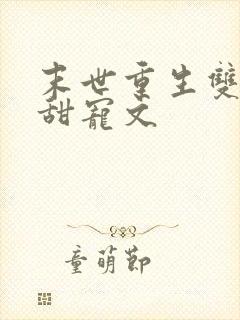 末世重生雙
甜寵文
童萌節